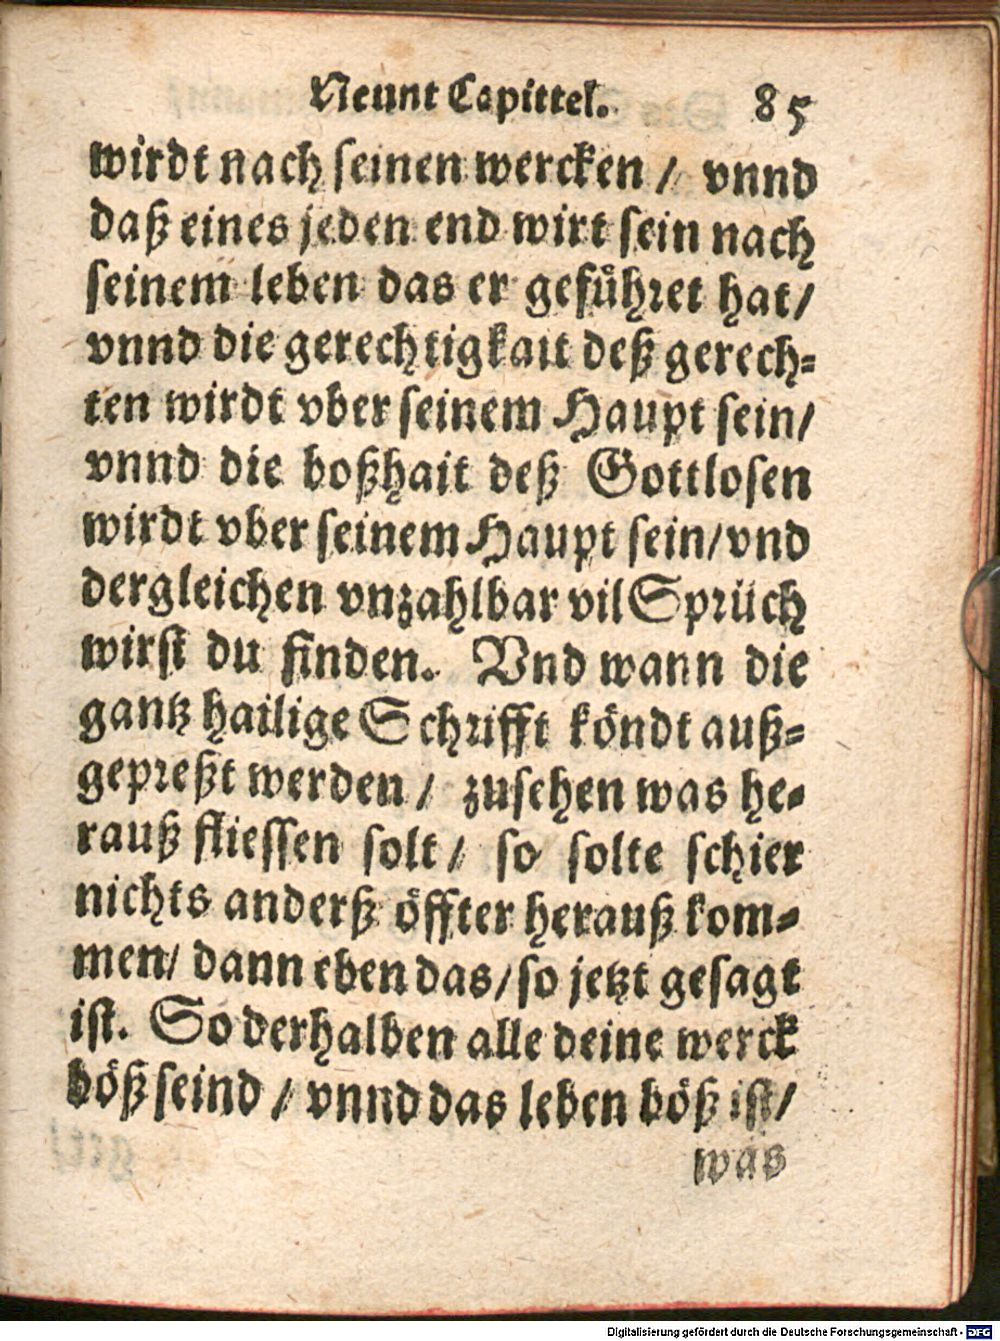 Neunt Capittel. 85
wirdt nach seinen wercken / vnnd
daß eines jeden end wirt sein nach
seinem leben das er gefůhret hat/
vnnd die gerechtigkait deß gerech-
ten wirdt vber seinem Haupt sein/
vnnd die boßhait deß Gottlosen
wirdt vber seinem Haupt sein/vnd
dergleichen vnzahlbar vil Sprüch
wirst du finden. Vnd wann die
gantz hailige Schrifft köndt auß-
gepreßt werden / zusehen was he-
rauß fliessen solt / so solte schier
nichts anderß öffter herauß kom-
men/ dann eben das/so jetzt gesagt
ist. So derhalben alle deine werck
böß seind / vnnd das leben böß ist/
was
Digitalisierung gefördert durch die Deutsche Forschungsgemeinschaft - DFG